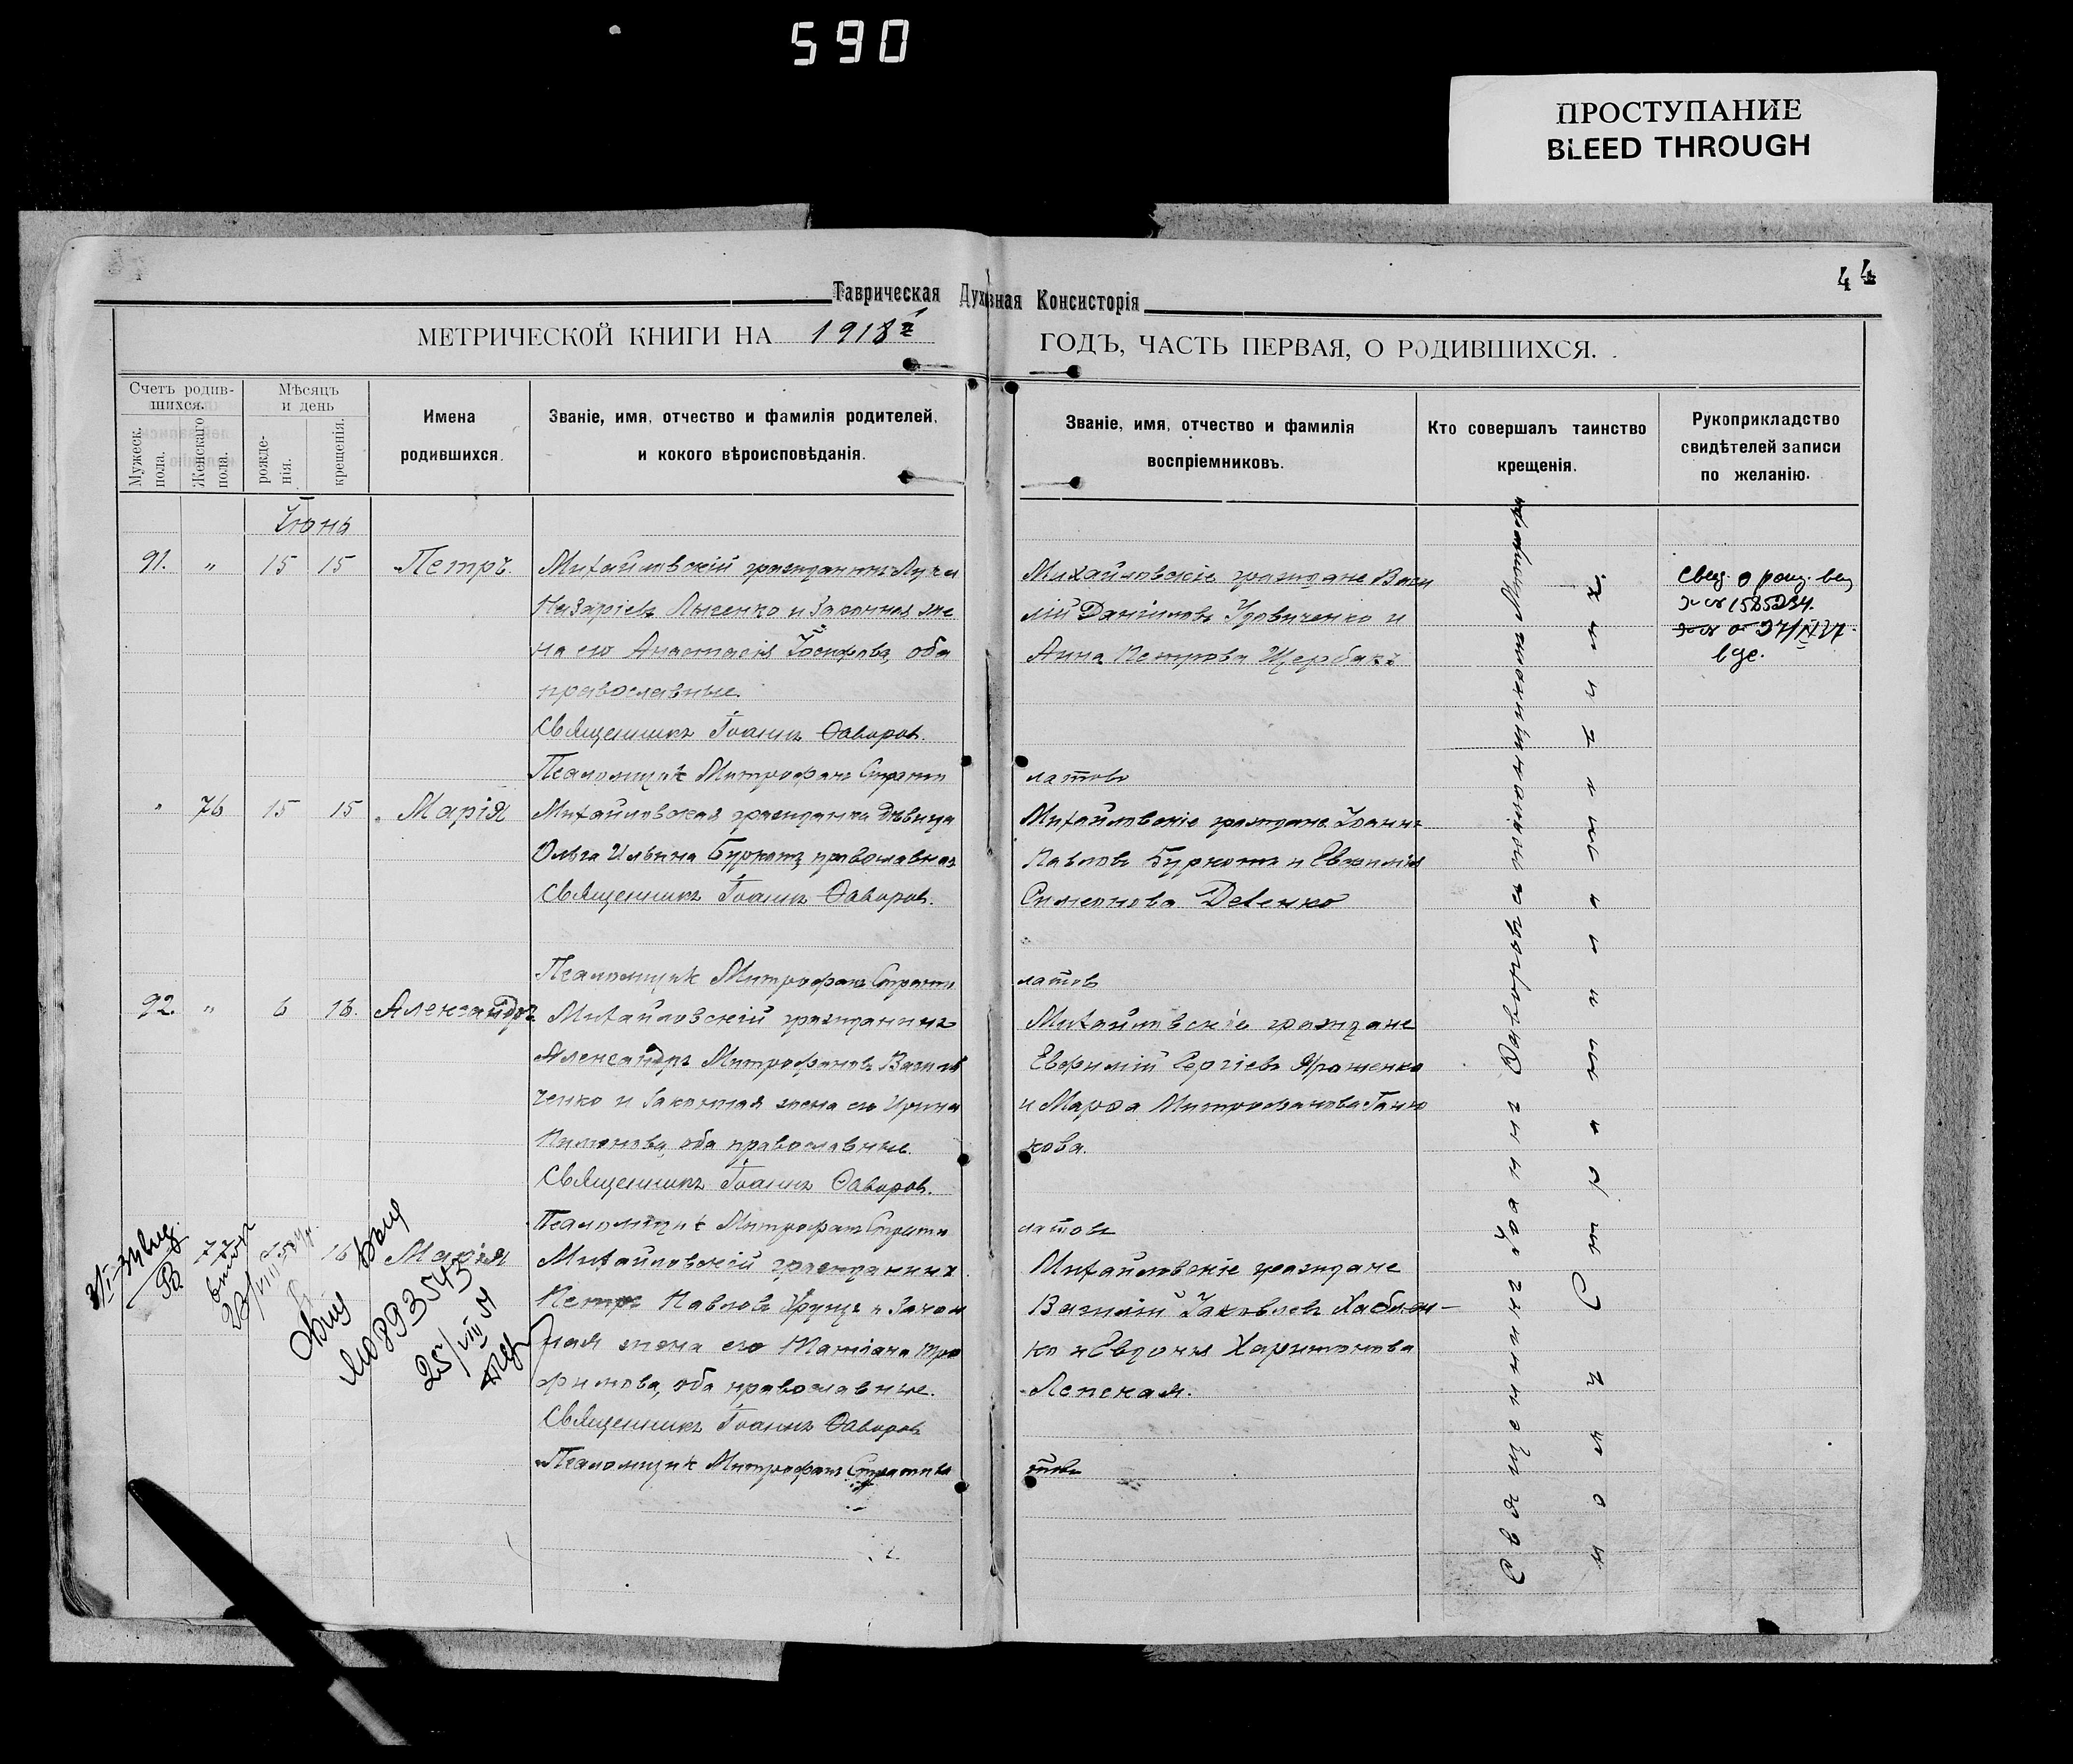 590
ПРОСТУПАНИЕ
BLEED THROUGH
44
Таврическая Духовная Консисторія
МЕТРИЧЕСКОЙ КНИГИ НА 1918 ГОДЪ, ЧАСТЬ ПЕРВАЯ, О РОДИВШИХСЯ.
Счетъ родив-
шихся.
Мужеск. пола.
Женскаго пола.
Мѣсяцъ
и день
рожде-
нія.
крещенія.
Имена
родившихся.
Званіе, имя, отчество и фамилія родителей,
и кокого вѣроисповѣданія.
Званіе, имя, отчество и фамилія
воспріемниковъ.
Кто совершалъ таинство
крещенія.
Рукоприкладство
свидѣтелей записи
по желанію.
Іюнь
91. " 15 15 Петръ.
Михайловскій гражданинъ
Назаріевъ Лысенко и законная же
на его Анастасія Іосифова, оба
православные.
Священникъ Іоаннъ Ѳаворовъ.
Псаломщикъ Митрофанъ Страти
латовъ
Михайловскіе граждане Васи
лій Даніиловъ Удовиченко и
Анна Петрова Щербакъ
" 76 15 15 Марія
Михайловская гражданка дѣвица
Ольга Ильина Буркотъ, православная
Священникъ Іоаннъ Ѳаворовъ.
Псаломщикъ Митрофанъ Страти
латовъ
Михайловскіе граждане Іоаннъ
Павловъ Буркотъ и Евфимія
Симеонова
92. " 6 16. Александръ
Михайловскій гражданинъ
Александръ Митрофановъ Василь
ченко и законная жена его Ирина
оба православные.
Священникъ Іоаннъ Ѳаворовъ.
Псаломщикъ Митрофанъ Страти
латовъ
Михайловскіе граждане
Евфимій Сергіевъ
и Марѳа Митрофанова
кова.
16 Марія
Михайловскій гражданинъ
Петръ Павловъ и закон
ная жена его Татіана Тро
фимова, оба православные.
Священникъ Іоаннъ Ѳаворовъ
Псаломщикъ Митрофанъ Стратила
товъ
Михайловскіе граждане
Василій Іаковлевъ
ко и Евдокія Харитонова
Лепская.
Священникъ Іоаннъ Ѳаворовъ съ псаломщикомъ Митрофаномъ Стратилатовымъ
Свид. о рожд.
1585234.
893543